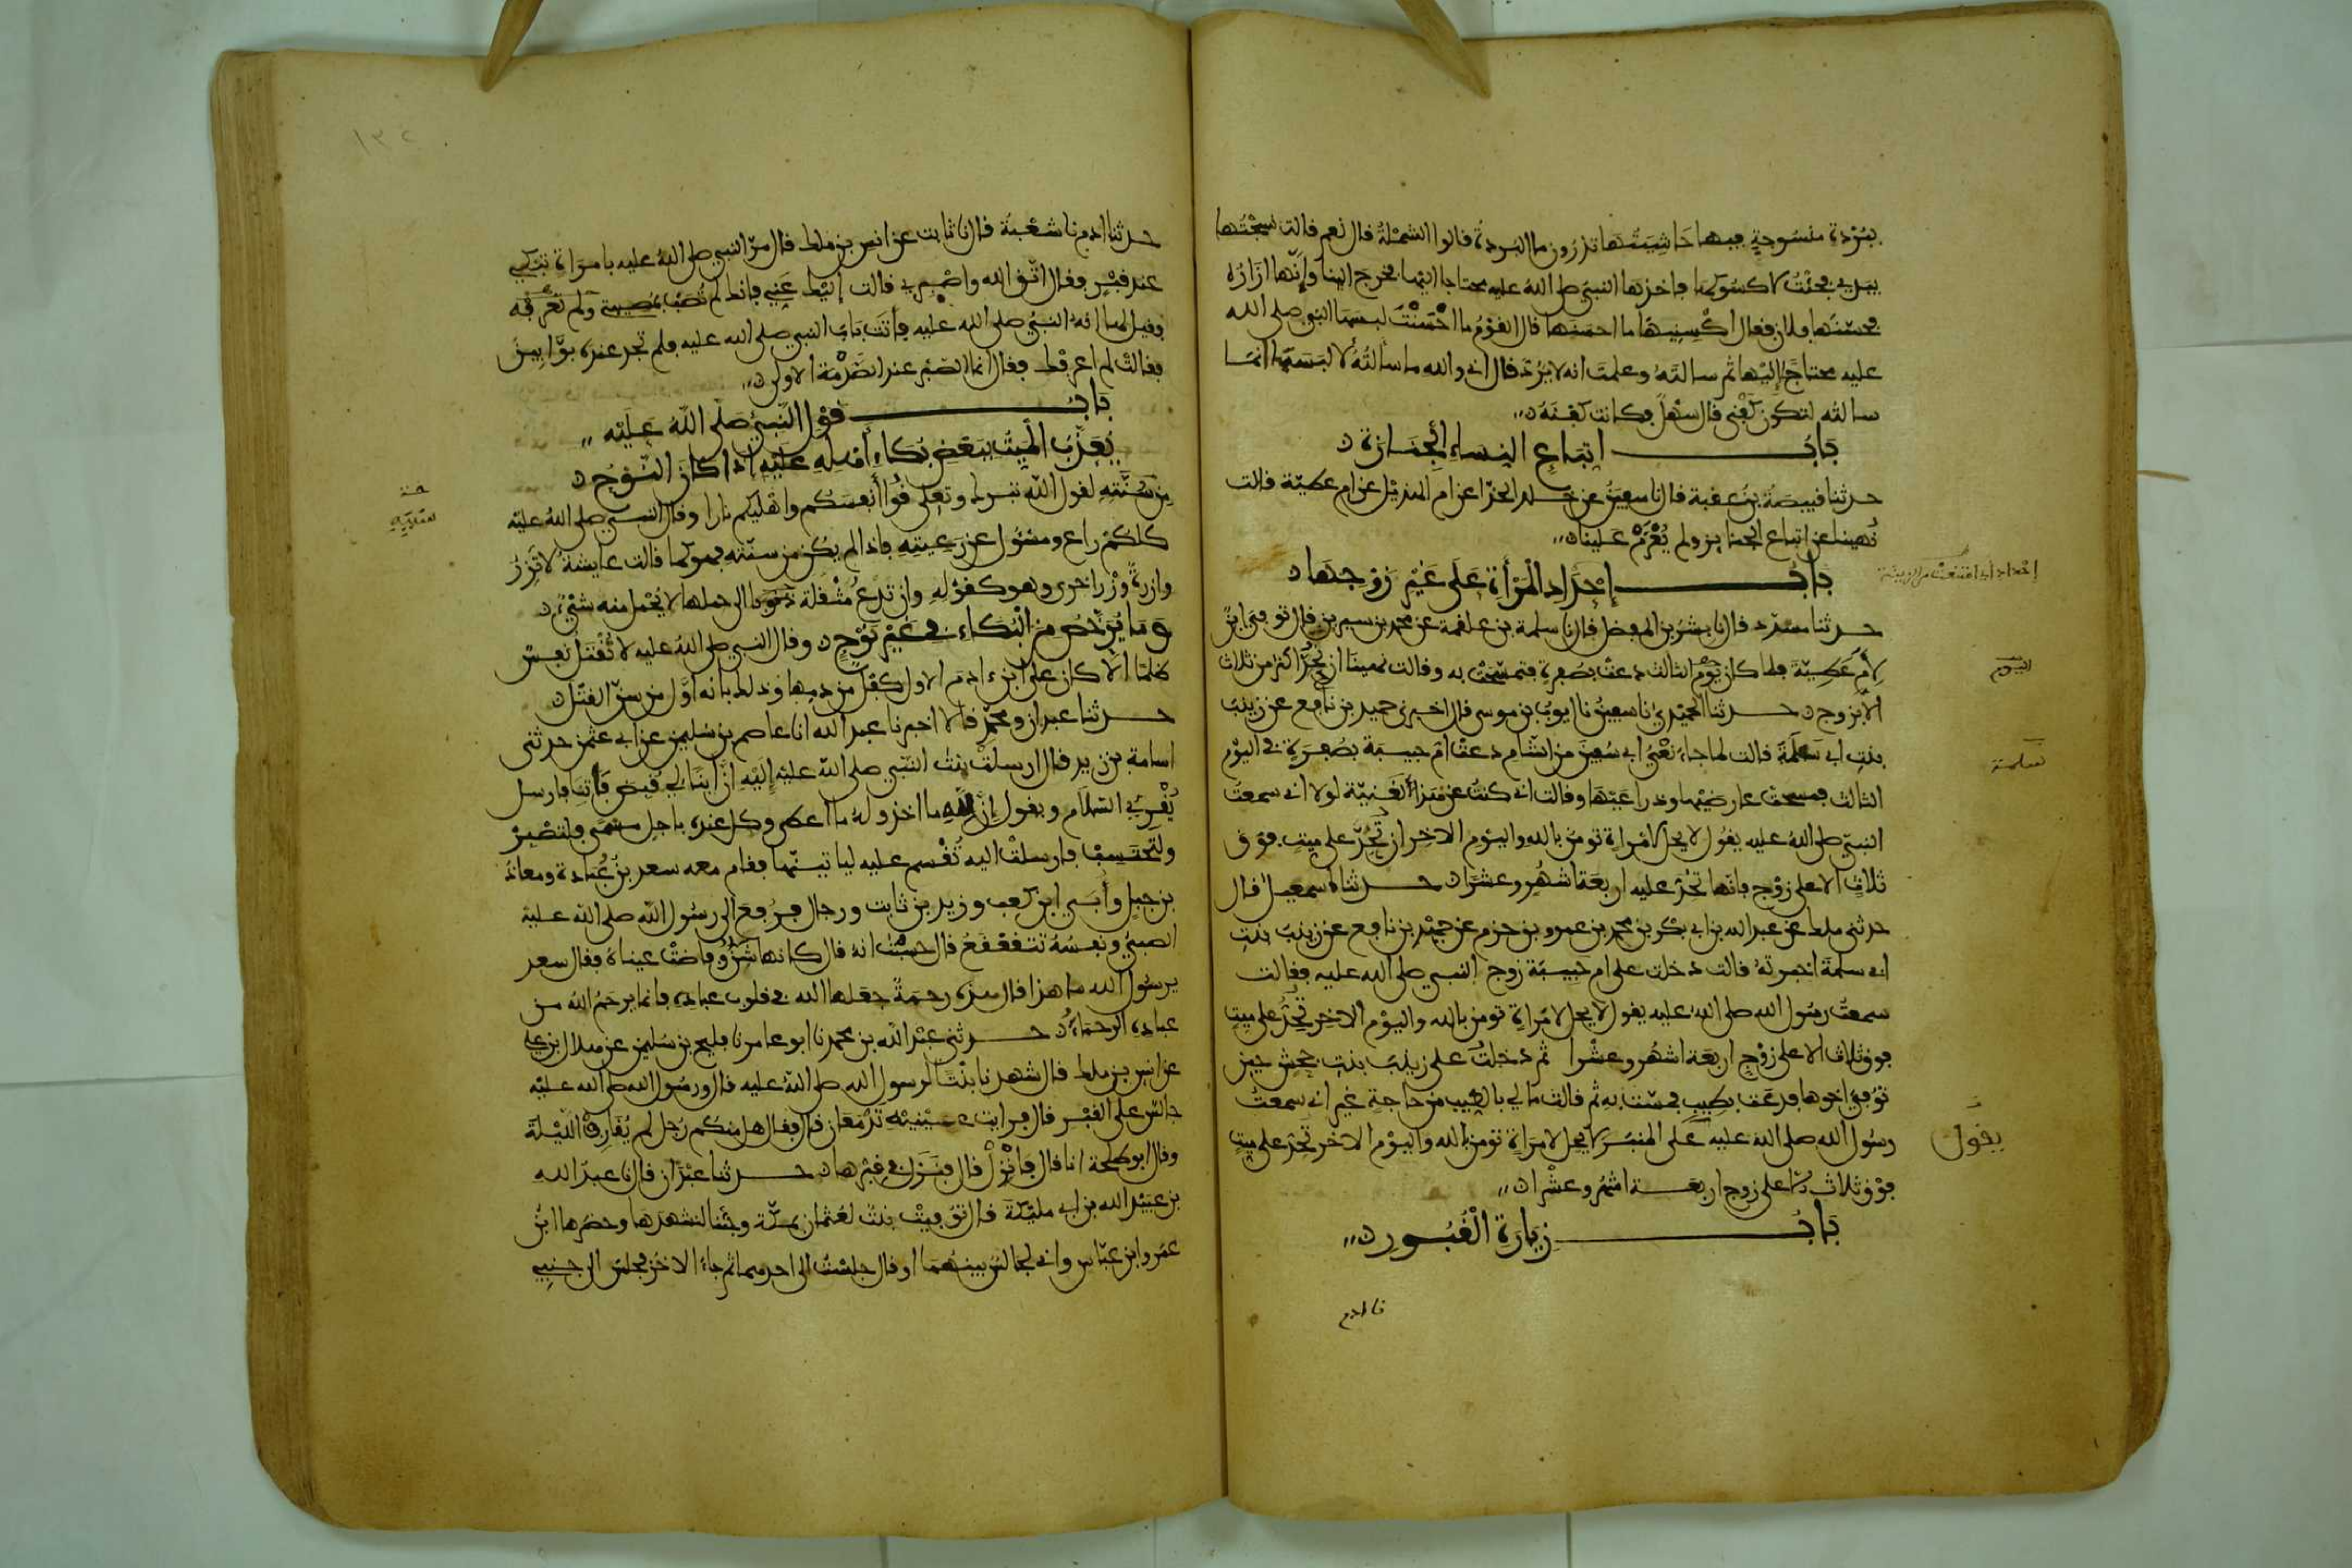 ببردة منسوجة فيها حاشيتها تدرون ما البردة قالوا الشملة قال نعم قالت نسجتها
بيدي فجئت لاكسوكها فاخذها النبي صلى الله عليه محتاجا اليها فخرج الينا وانها ازاره
فحسنها فلان فقال اكسنيها ما احسنها قال القوم ما احسنت لبسها النبي صلى الله
عليه محتاج إليها ثم سالته وعلمت انه لا يرد قال اني والله ما سالته لالبسها انما
سالته لتكون كفني قال سهل فكانت كفنه
باب اتباع النساء الجنازة
حدثنا قبيصة بن عقبة قال نا سفين عن خلد الحذا عن ام الهذيل عن ام عطية قالت
نهينا عن اتباع الجنايز ولم يعزم علينا
باب إحداد المرأة على غير زوجها
حدثنا مسدد قال نا بشر بن المفضل قال نا سلمة بن علقمة عن محمد بن سيرين قال توفي ابن
لام عطية فلما كان يوم الثالث دعت بصفرة فتمسحت به وقالت نهينا ان نحد اكثر من ثلاث
الا بزوج حدثنا الحميدي نا سفين نا ايوب بن موسى قال اخبرني حميد بن نافع عن زينب
بنت ابي سلمة قالت لما جاء نعي ابي سفين من الشام دعت ام حبيبة بصفرة في اليوم
الثالث فمسحت عارضيها وذراعيها وقالت اني كنت عن هذا لغنية لولا اني سمعت
النبي صلى الله عليه يقول لا يحل لامراة تومن بالله واليوم الاخر ان تحد على ميت فوق
ثلاث الا على زوج فانها تحد عليه اربعة اشهر وعشرا حدثنا اسمعيل قال
حدثني ملك عن عبد الله بن ابي بكر بن محمد بن عمرو بن حزم عن حميد بن نافع عن زينب بنت
ابي سلمة اخبرته قالت دخلت على ام حبيبة زوج النبي صلى الله عليه فقالت
سمعت رسول الله صلى الله عليه يقول لا يحل لامراة تومن بالله واليوم الاخر تحد على ميت
فوق ثلاث الا على زوج اربعة اشهر وعشرا ثم دخلت على زينب بنت جحش حين
توفي اخوها فدعت بطيب فمست به ثم قالت ما لي بالطيب من حاجة غير اني سمعت
رسول الله صلى الله عليه على المنبر لا يحل لامراة تومن بالله واليوم الاخر تحد على ميت
فوق ثلاث الا على زوج اربعة اشهر وعشرا
باب زيارة القبور
نا ادم
اليوم
سلمة
يقول
١٣٢
حدثنا ادم نا شعبة قال نا ثابت عن انس بن ملك قال مر النبي صلى الله عليه بامراة تبكي
عند قبر فقال اتق الله واصبري قالت إليك عني فانك لم تصب بمصيبتي ولم تعرفه
فقيل لها انه النبي صلى الله عليه فاتت باب النبي صلى الله عليه فلم تجد عنده بوابين
فقالت لم اعرفك فقال انما الصبر عند الصدمة الاولى
باب قول النبي صلى الله عليه
يعذب الميت ببعض بكاء أهله عليه إذا كان النوح
من سنته لقول الله تبرك وتعلى قوا أنفسكم واهليكم نارا وقال النبي صلى الله عليه
كلكم راع ومسئول عن رعيته فاذا لم يكن من سنته فهو كما قالت عايشة لا تزر
وازرة وزر اخرى وهو كقوله وان تدع مثقلة ذنوبا الى حملها لا يحمل منه شيء
وما يرخص من البكاء في غير نوح وقال النبي صلى الله عليه لا تقتل نفس
ظلما الا كان على ابن ءادم الاول كفل من دمها وذلك بانه اول من سن القتل
حدثنا عبدان ومحمد قالا اخبرنا عبد الله انا عاصم بن سليمن عن ابي عثمن حدثني
اسامة بن زيد قال ارسلت بنت النبي صلى الله عليه إليه ان ابنا لي قبض فأتنا فارسل
يقرئ السلام ويقول إن لله ما اخذ وله ما اعطى وكل عنده باجل مسمى فلتصبر
ولتحتسب فارسلت اليه تقسم عليه لياتينها فقام معه سعد بن عبادة ومعاذ
بن جبل وأبي ابن كعب وزيد بن ثابت ورجال فرفع الى رسول الله صلى الله عليه
الصبي ونفسه تتقعقع قال حسبت انه قال كانها شن وفاضت عيناه فقال سعد
يرسول الله ما هذا قال هذه رحمة جعلها الله في قلوب عباده فانما يرحم الله من
عباده الرحماء حدثني عبد الله بن محمد نا ابو عامر نا فليح بن سليمن عن هلال ابن علي
عن انس بن ملك قال شهدنا بنتا لرسول الله صلى الله عليه قال ورسول الله صلى الله عليه
جالس على القبر قال فرايت عينيه تدمعان قال فقال هل منكم رجل لم يقارف الليلة
وقال ابو طلحة انا قال فانزل قال فنزل في قبرها حدثنا عبدان قال نا عبد الله
بن عبيد الله بن ابي مليكة قال توفيت بنت لعثمان بمكة وجئنا لنشهدها وحضرها ابن
عمر وابن عباس واني لجالس بينهما او قال جلست الى احدهما ثم جاء الاخر فجلس الى جنبي